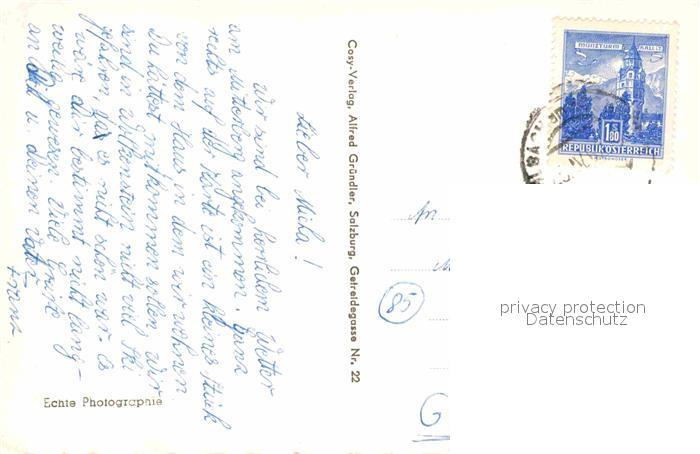 Lieber Micha!
Wir sind bei herrlichem Wetter
am Mitterberg angekommen. Ganz
rechts auf der Karte ist ein kleines Stück
von dem Haus in dem wir wohnen
Du hättest mitkommen sollen. Wir
sind in nicht viel Ski
gefahren, es nicht schön war es
wäre dir bestimmt nicht lang-
weilig gewesen. Viele Grüße
an Dich u. deinen Vater
Franz.
Echte Photographie
Cosy-Verlag, Alfred Gründler, Salzburg, Getreidegasse Nr. 22
MÜNZTURM HALL i.T.
S 1.80
REPUBLIK ÖSTERREICH
An
85
G
privacy protection
Datenschutz